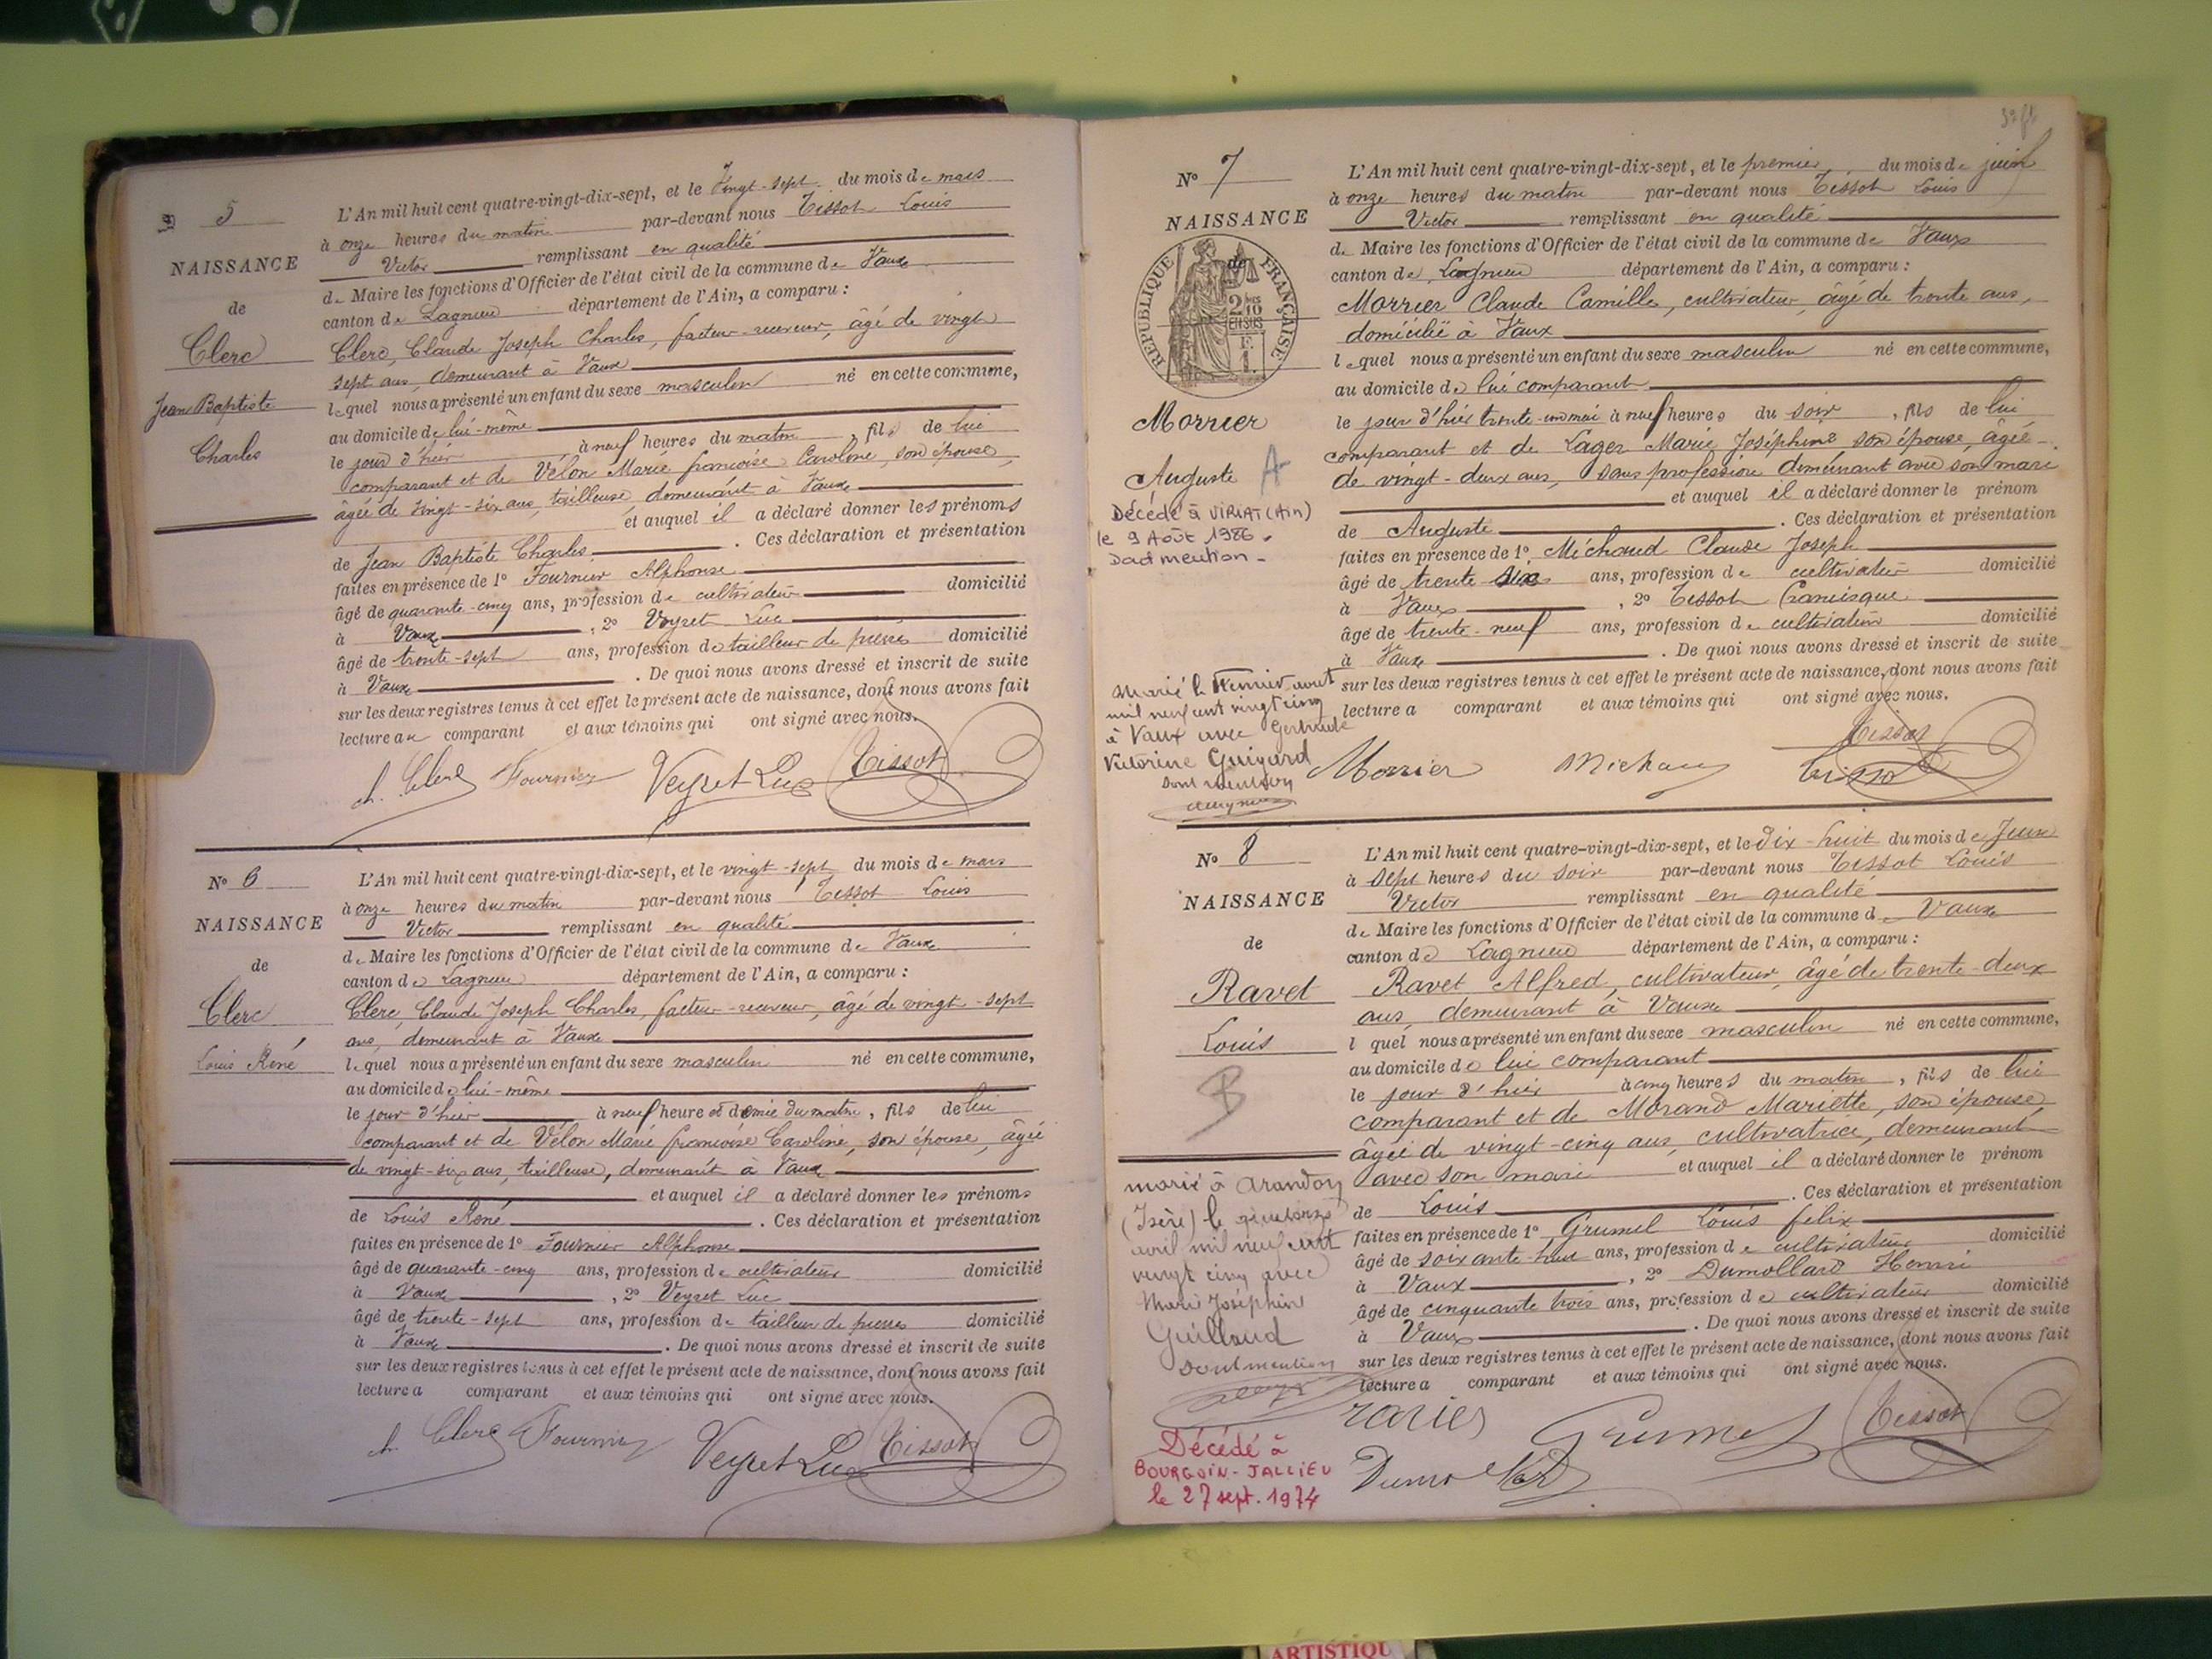 N° 5
NAISSANCE
de
Clerc
Jean Baptiste
Charles
L'An mil huit cent quatre-vingt-dix-sept, et le Vingt-sept du mois de mars
à onze heures du matin par-devant nous Tissot Louis
Victor remplissant en qualité
de Maire les fonctions d'Officier de l'état civil de la commune de Vaux
canton de Lagnieu département de l'Ain, a comparu :
Clerc, Claude Joseph Charles, facteur-receveur, âgé de vingt
sept ans, demeurant à Vaux
lequel nous a présenté un enfant du sexe masculin né en cette commune,
au domicile de lui-même
le jour d'hier à neuf heures du matin, fils de lui
comparant et de Vélon Marie françoise Caroline, son épouse,
âgée de vingt-six ans, tailleuse, demeurant à Vaux
et auquel il a déclaré donner les prénoms
de Jean Baptiste Charles . Ces déclaration et présentation
faites en présence de 1° Fournier Alphonse
âgé de quarante-cinq ans, profession de cultivateur domicilié
à Vaux , 2° Veyret Luc
âgé de trente-sept ans, profession de tailleur de pierres domicilié
à Vaux . De quoi nous avons dressé et inscrit de suite
sur les deux registres tenus à cet effet le présent acte de naissance, dont nous avons fait
lecture au comparant et aux témoins qui ont signé avec nous.
ch. Clerc Fournier Veyret Luc Tissot
N° 6
NAISSANCE
de
Clerc
Louis René
L'An mil huit cent quatre-vingt-dix-sept, et le vingt-sept du mois de mars
à onze heures du matin par-devant nous Tissot Louis
Victor remplissant en qualité
de Maire les fonctions d'Officier de l'état civil de la commune de Vaux
canton de Lagnieu département de l'Ain, a comparu :
Clerc, Claude Joseph Charles, facteur-receveur, âgé de vingt-sept
ans, demeurant à Vaux
lequel nous a présenté un enfant du sexe masculin né en cette commune,
au domicile de lui-même
le jour d'hier à neuf heure et demie du matin, fils de lui
comparant et de Vélon Marie françoise Caroline, son épouse, âgée
de vingt-six ans, tailleuse, demeurant à Vaux
et auquel il a déclaré donner les prénoms
de Louis René . Ces déclaration et présentation
faites en présence de 1° Fournier Alphonse
âgé de quarante-cinq ans, profession de cultivateur domicilié
à Vaux , 2° Veyret Luc
âgé de trente-sept ans, profession de tailleur de pierres domicilié
à Vaux . De quoi nous avons dressé et inscrit de suite
sur les deux registres tenus à cet effet le présent acte de naissance, dont nous avons fait
lecture a comparant et aux témoins qui ont signé avec nous.
ch. Clerc Fournier Veyret Luc Tissot
N° 7
NAISSANCE
de
RÉPUBLIQUE FRANÇAISE
2/10 EN SUS
F. 1.
Morrier
Auguste A
Décédé à VIRIAT (Ain)
le 9 Août 1986.
Dont mention -
Marié le Premier avril
mil neuf cent vingt cinq
à Vaux avec Gertrude
Victorine Guigard
Dont mention
L'An mil huit cent quatre-vingt-dix-sept, et le premier du mois de juin
à onze heures du matin par-devant nous Tissot Louis
Victor remplissant en qualité
de Maire les fonctions d'Officier de l'état civil de la commune de Vaux
canton de Lagnieu département de l'Ain, a comparu :
Morrier Claude Camille, cultivateur, âgé de trente ans,
domicilié à Vaux
lequel nous a présenté un enfant du sexe masculin né en cette commune,
au domicile de lui comparant
le jour d'hier trente-un mai à neuf heures du soir, fils de lui
comparant et de Lager Marie Joséphine son épouse, âgée
de vingt-deux ans, sans profession demeurant avec son mari
et auquel il a déclaré donner le prénom
de Auguste . Ces déclaration et présentation
faites en présence de 1° Michaud Claude Joseph
âgé de trente-six ans, profession de cultivateur domicilié
à Vaux , 2° Tissot Francisque
âgé de trente-neuf ans, profession de cultivateur domicilié
à Vaux . De quoi nous avons dressé et inscrit de suite
sur les deux registres tenus à cet effet le présent acte de naissance, dont nous avons fait
lecture a comparant et aux témoins qui ont signé avec nous.
Morrier Michaud Tissot
Tissot
N° 8
NAISSANCE
de
Ravet
Louis
B
marié à Arandon
(Isère) le quatorze
avril mil neuf cent
vingt cinq avec
Marie Joséphine
Guilloud
Dont mention
Décédé à
BOURGOIN-JALLIEU
le 27 sept. 1974
L'An mil huit cent quatre-vingt-dix-sept, et le Dix-huit du mois de Juin
à sept heures du soir par-devant nous Tissot Louis
Victor remplissant en qualité
de Maire les fonctions d'Officier de l'état civil de la commune de Vaux
canton de Lagnieu département de l'Ain, a comparu :
Ravet Alfred, cultivateur, âgé de trente-deux
ans, demeurant à Vaux
l quel nous a présenté un enfant du sexe masculin né en cette commune,
au domicile de lui comparant
le jour d'hier à cinq heures du matin, fils de lui
comparant et de Morand Mariette, son épouse,
âgée de vingt-cinq ans, cultivatrice, demeurant
avec son mari et auquel il a déclaré donner le prénom
de Louis . Ces déclaration et présentation
faites en présence de 1° Grumel Louis felix
âgé de soixante-huit ans, profession de cultivateur domicilié
à Vaux , 2° Dumollard Henri
âgé de cinquante trois ans, profession de cultivateur domicilié
à Vaux . De quoi nous avons dressé et inscrit de suite
sur les deux registres tenus à cet effet le présent acte de naissance, dont nous avons fait
lecture a comparant et aux témoins qui ont signé avec nous.
Grumel Tissot
Dumollard
ARTISTIQU